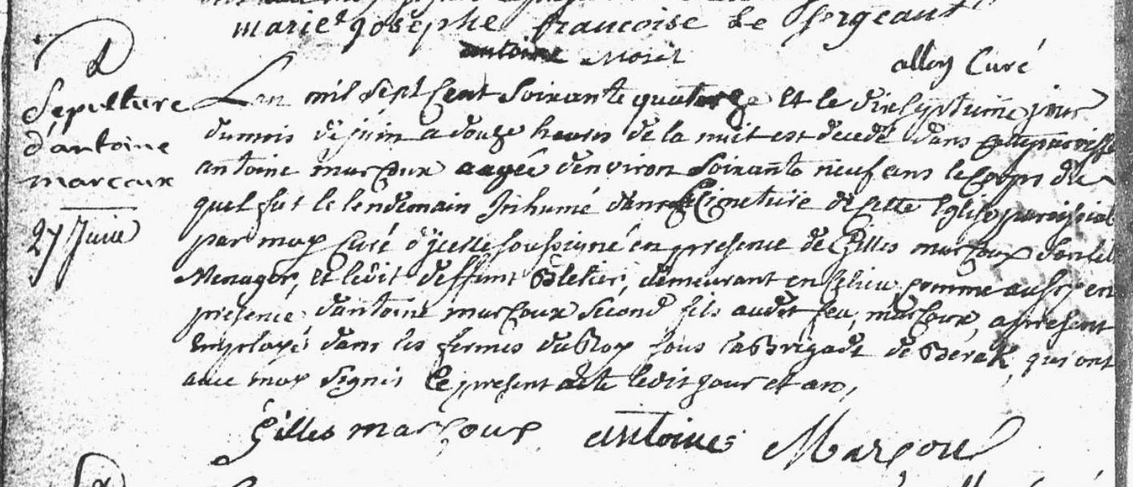 marie Joséphe françoise Le Sergeant
antoine Morel
alloy Curé
Sepulture
d'antoine
marcoux
27 Juin
Lan mil sept Cent Soixante quatorze Et le dixseptieme jour
du mois de juin a douze heures de la nuit est decedé dans cette paroisse
antoine marcoux aagée denviron Soixante neuf ans le Corps du
quel fut le lendemain Inhumé dans le Cimetiére de cette Eglise paroissial
par moy Curé d'ycelle soussigné en presence de Gilles marcoux son fils
Menager, et ledit deffunt demeurant en ce lieu comme aussy en
presence d'antoine marcoux second fils audit feu, marcoux, apresent
Employé dans les fermes du Roy sous la Brigade de qui ont
avec moy signés le present acte ledit jour et an,
Gilles marcoux antoine Marcou